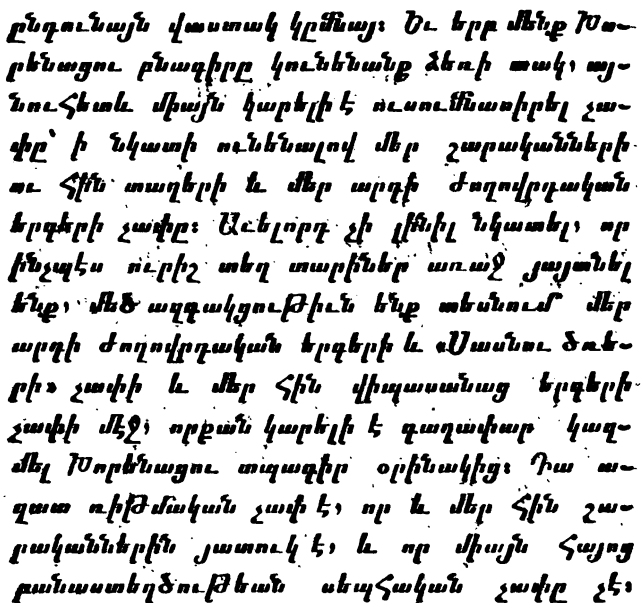 ընդունայն վաստակ կըմնայ։ Եւ երբ մենք Խո-
րենացու բնագիրը կունենանք ձեռի տակ, այ-
նուհետև միայն կարելի է ուսումնասիրել չա-
փը՝ ի նկատի ունենալով մեր շարականների
ու հին տաղերի և մեր արդի ժողովրդական
երգերի չափը։ Աւելորդ չի լինիլ նկատել, որ
ինչպէս ուրիշ տեղ տարիներ առաջ յայտնել
ենք, մեծ ազգակցութիւն ենք տեսնում մեր
արդի ժողովրդական երգերի և «Սասնու ծռե-
րի» չափի և մեր հին վիպասանաց երգերի
չափի մէջ, որքան կարելի է գաղափար կազ-
մել Խորենացու տպագիր օրինակից։ Դա ա-
զատ ռիթմական չափ է, որ և մեր հին շա-
րականներին յատուկ է, և որ միայն հայոց
բանաստեղծութեան սեպհական չափը չէ։